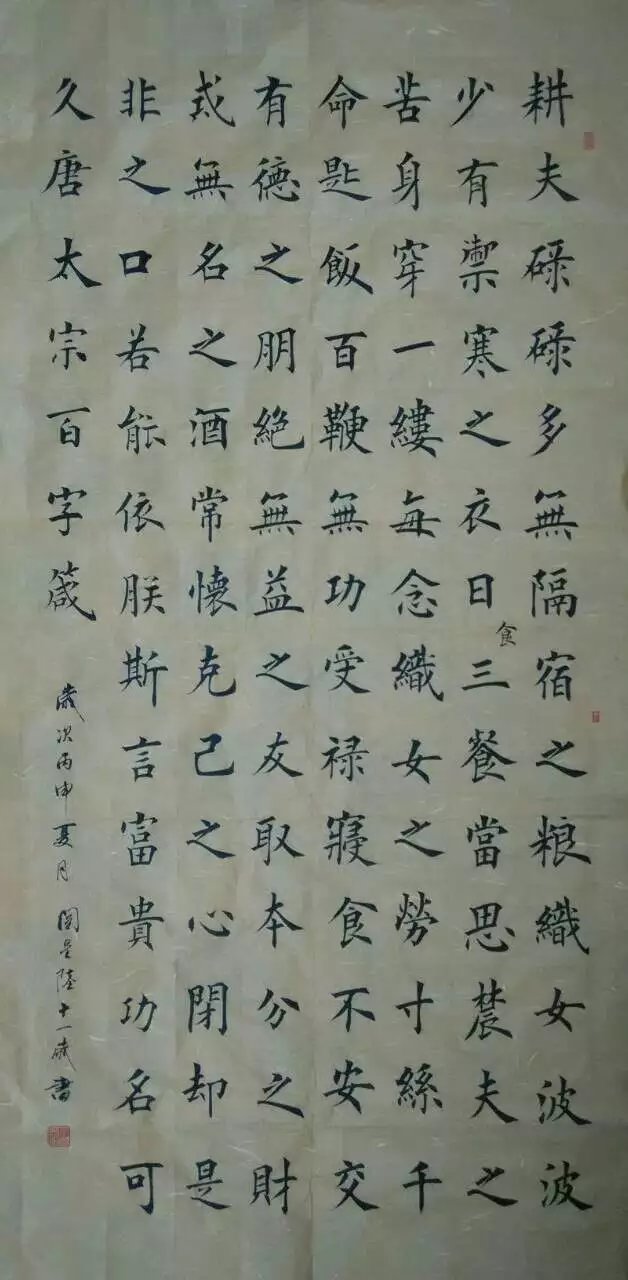 耕夫碌碌多無隔宿之粮織女波波
少有禦寒之衣日食三餐當思農夫之
苦身穿一縷每念織女之勞寸絲千
命匙飯百鞭無功受禄寢食不安交
有德之朋絕無益之友取本分之財
戒無名之酒常懷克己之心閉却是
非之口若能依朕斯言富貴功名可
久唐太宗百字箴
歲次丙申夏月 閻星陸十一歲書